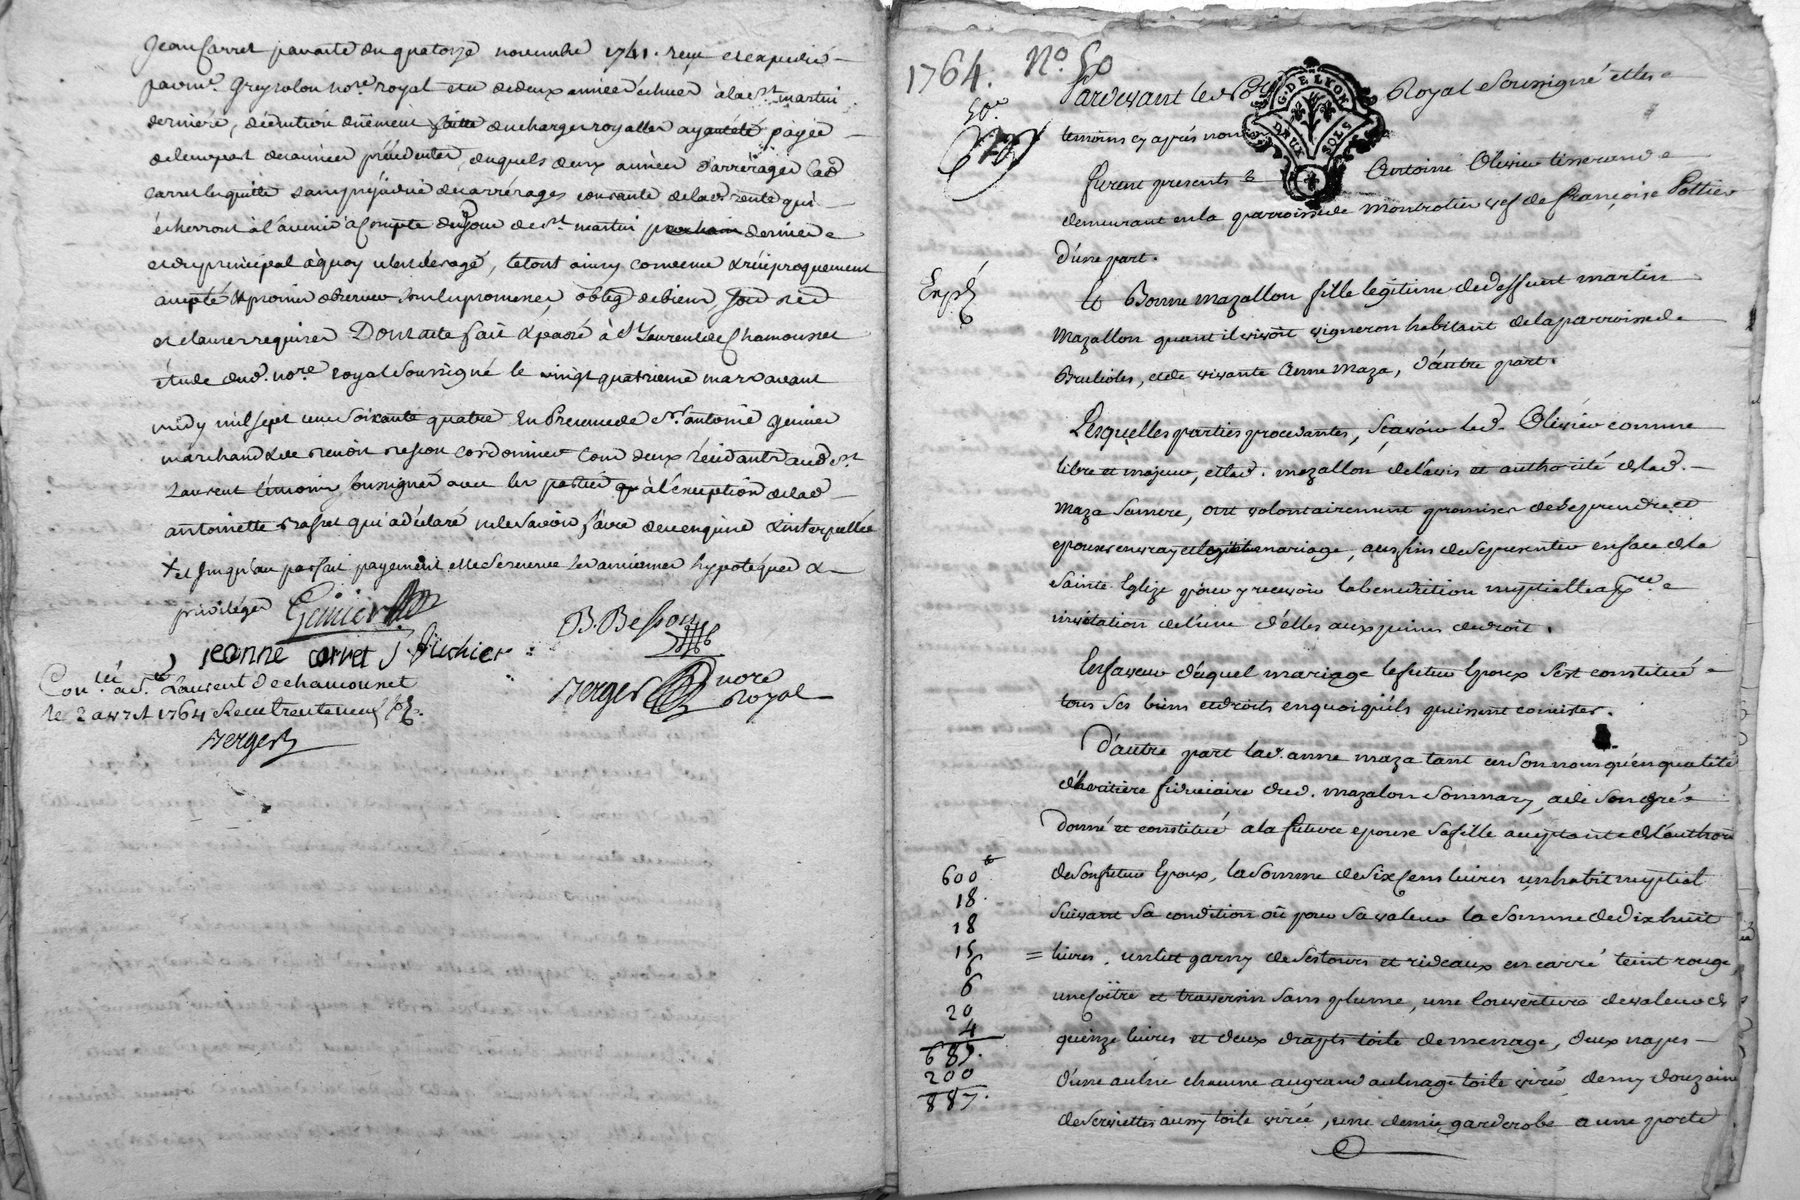 Jean Carret par acte du quatorze novembre 1741. reçu et expedié
par me. Greysolon nore. royal et a de deux années échues à la st. martin
derniere, déduction duëment faitte des charges royalles ayant été payée
de leur part des années précédentes, desquels deux années d'arrérages lad
Carret les quitte sans préjudice des arrérages courants de lad. rente qui
écherront à l'avenir à Compte du jour de st. martin prochain derniere
et du principal à quoy
accepté
et clauses requises Dont acte fait & passé à st Laurent de Chamousset
étude dud. nore. royal soussigné le vingt quatrieme mars avant
midy mil sept cens soixante quatre En Presence de sr. antoine Genier
marchand & de Benoit Besson cordonnier tous deux résidants aud st
Laurent témoins soussignés avec les parties à l'exception de lad
antoinette qui a déclaré ne le savoir faire de ce enquise & interpellée
+ et jusqu'au parfait payement elle se reserve les anciennes hypoteques &
privileges Genier
B. Besson
jeanne carret
Berger nore Royal
Con.lé a st. Laurent de chamousset
le 2 avril 1764 Recu trente neuf
Berger
1764. No. 50
G. DE LYON
DEUX SOLS
Pardevant le No.re Royal Soussigné et les
temoins cy après nommés
furent presents Antoine Olivier tisserand
demeurant en la parroisse de Montrotier vef de françoise Pottier
D'une part.
Expé
Et Bonne mazallon fille légitime de deffunt martin
Mazallon quant il vivoit vigneron habitant de la parroisse de
Brulioles, et de vivante Anne Maza, D'autre part.
Lesquelles parties procedantes, Scavoir led. Olivier comme
libre et majeur, et lad. mazallon de l'avis et authorité de lad.
Maza sa mere, ont volontairement promises de se prendre et
epouser en vray et légitime mariage, aux fins de se presenter en face de la
Sainte Eglize pour y recevoir la benediction nuptialle a pre.re
invitation de l'une d'elles aux peines de droit.
En faveur duquel mariage le futur Epoux s'est constitué
tous ses biens et droits en quoi qu'ils puissent consister.
D'autre part lad. anne maza tant en son nom qu'en qualité
d'héritière fiduciaire dud. mazalon son mary, a de son gré
donné et constitué a la future epouse sa fille acceptante de l'authorité
de son futur Epoux, la somme de six cens livres un habit nuptial
suivant sa condition ou pour sa valeur la somme de dix huit
= livres, un lut garny de ses tours et rideaux en carré teint rouge,
une coitre et traversin sans plume, une couverture de valeur de
quinze livres et deux draps toile de menage, deux napes
d'une aulne chacune au grand aulnage toile virée demy douzaine
de serviettes aussy toile virée, une demie garderobe a une porte
600 tt
18.
18
15
6
6
20
4
687.
200
887.